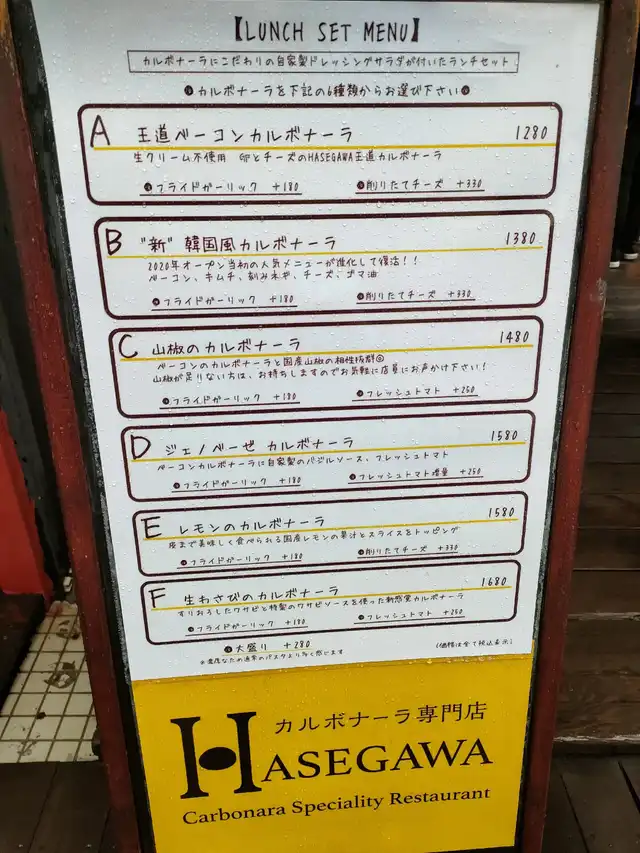 【LUNCH SET MENU】
カルボナーラにこだわりの自家製ドレッシングサラダが付いたランチセット
カルボナーラを下記の6種類からお選び下さい
A 王道ベーコンカルボナーラ 1280
生クリーム不使用 卵とチーズのHASEGAWA王道カルボナーラ
フライドガーリック +180 削りたてチーズ +330
B "新" 韓国風カルボナーラ 1380
2020年オープン当初の人気メニューが進化して復活！！
ベーコン、キムチ、刻みネギ、チーズ、ゴマ油
フライドガーリック +180 削りたてチーズ +330
C 山椒のカルボナーラ 1480
ベーコンのカルボナーラと国産山椒の相性抜群◎
山椒が足りない方は、お持ちしますのでお気軽に店員にお声かけ下さい！
フライドガーリック +180 フレッシュトマト +250
D ジェノベーゼ カルボナーラ 1580
ベーコンカルボナーラに自家製のバジルソース、フレッシュトマト
フライドガーリック +180 フレッシュトマト増量 +250
E レモンのカルボナーラ 1580
皮まで美味しく食べられる国産レモンの果汁とスライスをトッピング
フライドガーリック +180 削りたてチーズ +330
F 生わさびのカルボナーラ 1680
すりおろしたワサビと特製のワサビソースを使った新感覚カルボナーラ
フライドガーリック +180 フレッシュトマト +250
大盛り +280 (価格は全て税込表示)
※濃厚なため通常のパスタより多く感じます
カルボナーラ専門店
HASEGAWA
Carbonara Speciality Restaurant